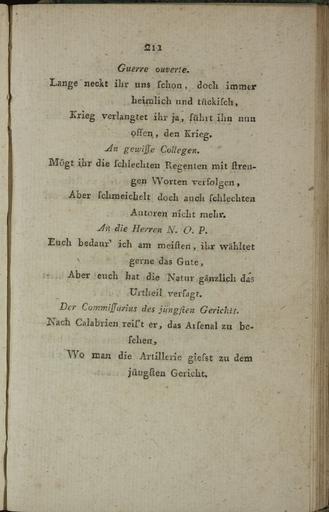 211
Guerre ouverte.
Lange neckt ihr uns ſchon, doch immer
heimlich und tückiſch,
Krieg verlangtet ihr ja, führt ihn nun
offen, den Krieg.
An gewiſſe Collegen.
Mögt ihr die ſchlechten Regenten mit ſtren-
gen Worten verfolgen,
Aber ſchmeichelt doch auch ſchlechten
Autoren nicht mehr.
An die Herren N. O. P.
Euch bedaur' ich am meiſten, ihr wähltet
gerne das Gute,
Aber euch hat die Natur gänzlich das
Urtheil verſagt.
Der Commiſſarius des jüngſten Gerichts.
Nach Calabrien reiſ't er, das Arſenal zu be-
ſehen,
Wo man die Artillerie gieſst zu dem
jüngſten Gericht.